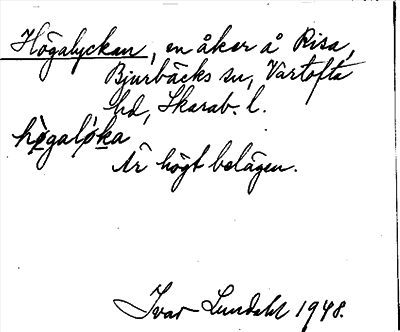 Högalyckan, en åker å Risa,
Bjurbäcks sn, Vartofta
hd, Skarab. l.
hø̀galø̀ka
Är högt belägen.
Ivar Lundahl 1948.